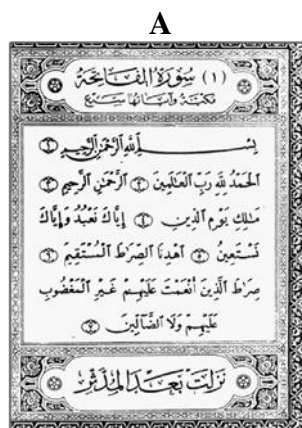 A
(١) سُورَةُ الفَاتِحَة
مكيّة وآياتها سَبع
بِسْمِ ٱللَّهِ ٱلرَّحْمَٰنِ ٱلرَّحِيمِ ١
ٱلْحَمْدُ لِلَّهِ رَبِّ ٱلْعَٰلَمِينَ ٢ ٱلرَّحْمَٰنِ ٱلرَّحِيمِ ٣
مَٰلِكِ يَوْمِ ٱلدِّينِ ٤ إِيَّاكَ نَعْبُدُ وَإِيَّاكَ
نَسْتَعِينُ ٥ ٱهْدِنَا ٱلصِّرَٰطَ ٱلْمُسْتَقِيمَ ٦
صِرَٰطَ ٱلَّذِينَ أَنْعَمْتَ عَلَيْهِمْ غَيْرِ ٱلْمَغْضُوبِ
عَلَيْهِمْ وَلَا ٱلضَّآلِّينَ ٧
نزلت بَعد المدّثر